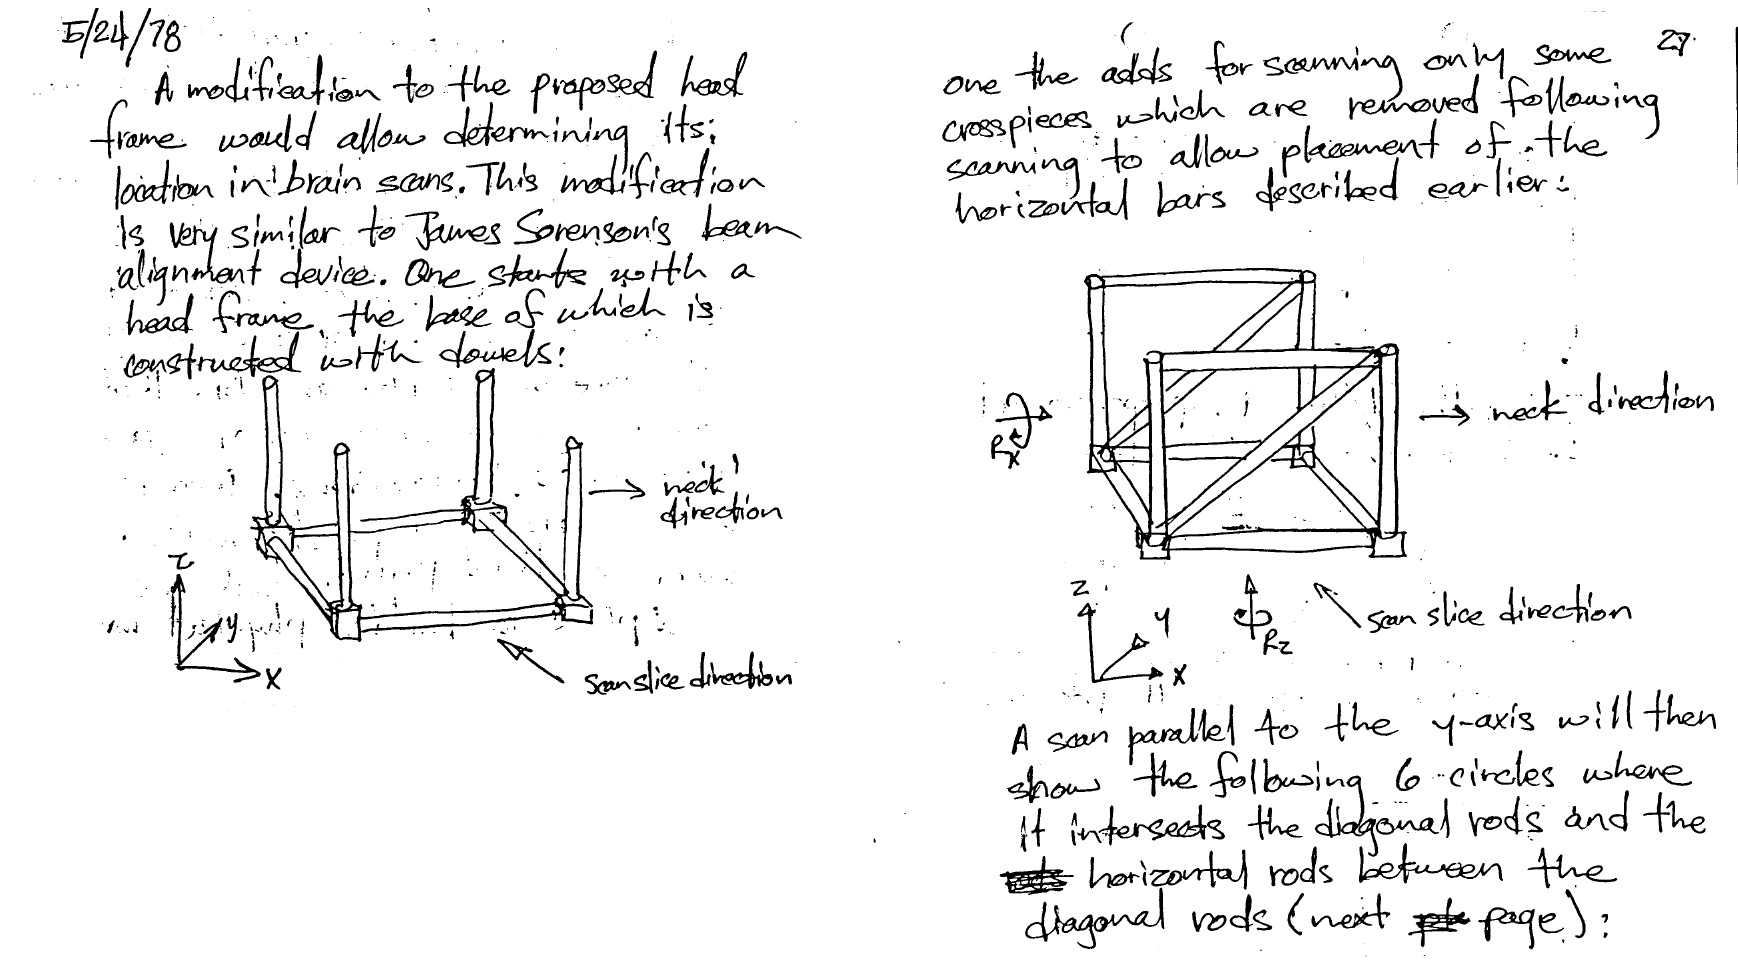 5/24/78
A modification to the proposed head
frame would allow determining its
location in brain scans. This modification
is very similar to James Sorenson's beam
alignment device. One starts with a
head frame, the base of which is
constructed with dowels:
neck
direction
z
y
x
scan slice direction
27
one the adds for scanning only some
crosspieces which are removed following
scanning to allow placement of the
horizontal bars described earlier:
neck direction
Rx
z
y
x
Rz
scan slice direction
A scan parallel to the y-axis will then
show the following 6 circles where
it intersects the diagonal rods and the
horizontal rods between the
diagonal rods (next page):